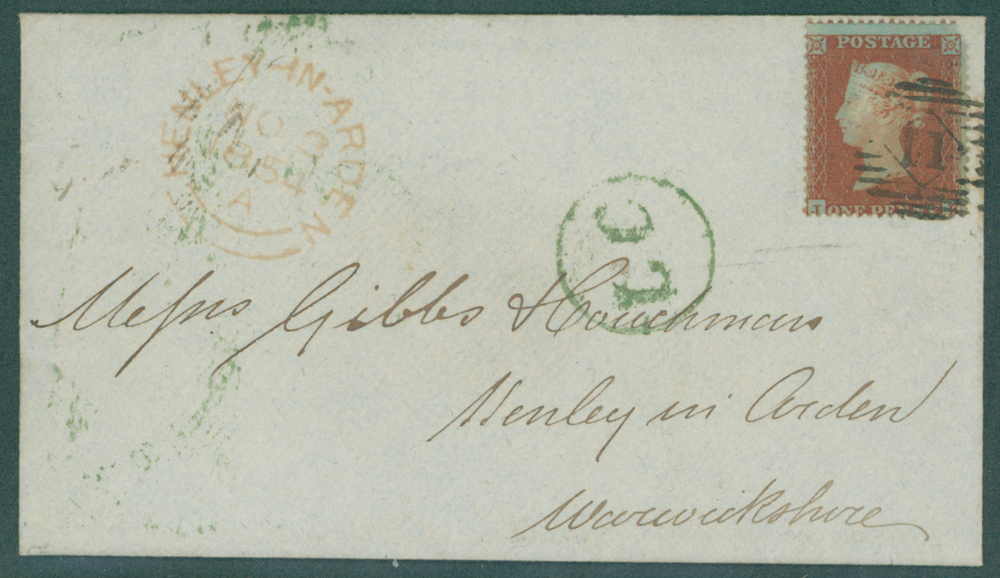 HENLEY-IN-ARDEN
NO
1854
A
POSTAGE
ONE PEN
Messrs Gibbs & Couchman
Henley in Arden
Warwickshire